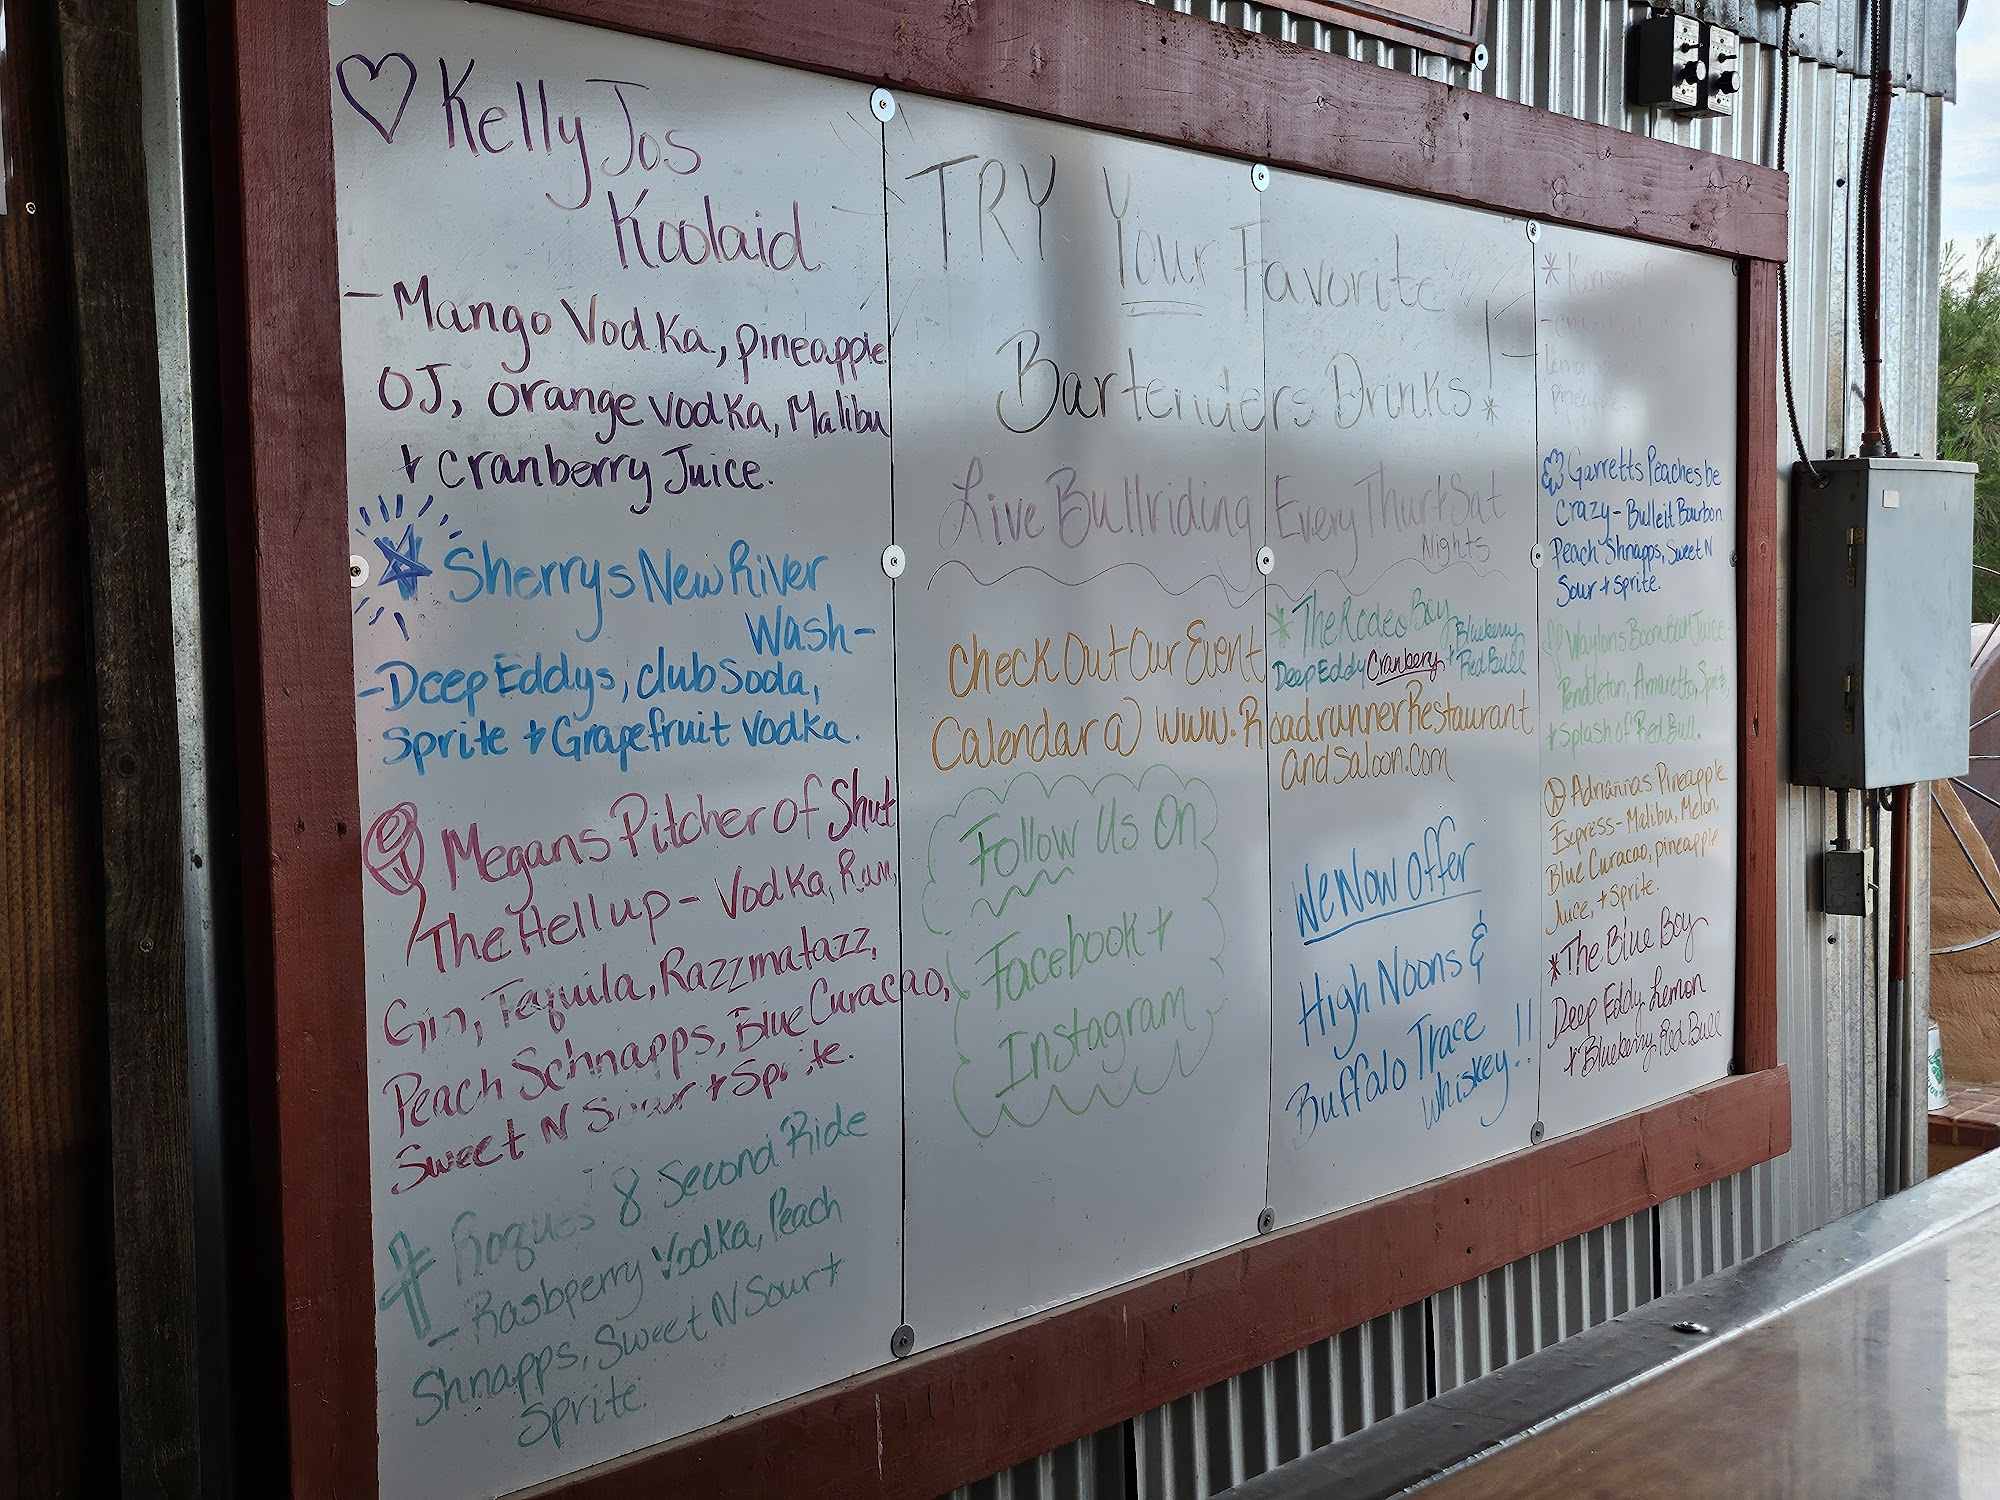 Kelly Jos
Koolaid
- Mango Vodka, pineapple
OJ, orange vodka, Malibu
+ cranberry Juice.
Sherrys New River
Wash-
- Deep Eddys, club soda,
Sprite + Grapefruit vodka.
Megans Pitcher of Shut
The Hell up - Vodka, Rum,
Gin, Tequila, Razzmatazz,
Peach Schnapps, Blue Curacao,
Sweet N Sour + Sprite.
Rogues 8 Second Ride
- Rasbperry Vodka, Peach
Shnapps, Sweet N Sour +
Sprite.
TRY Your Favorite
Bartenders Drinks!
Live Bullriding Every Thur + Sat
Nights
Check Out Our Event
Calendar @ www.RoadrunnerRestaurant
andSaloon.com
Follow Us On
Facebook +
Instagram
* The Rodeo Boy
Deep Eddy Cranbery + Blueberry
Red Bull
We Now Offer
High Noons &
Buffalo Trace
Whiskey!!
pineapple.
Garretts Peaches be
Crazy - Bulleit Bourbon
Peach Shnapps, Sweet N
Sour + Sprite.
Waylons Boom Boom Juice-
Pendleton, Amaretto, Sprite,
+ Splash of Red Bull.
Adriannas Pineapple
Express - Malibu, Melon,
Blue Curacao, pineapple
Juice, + Sprite.
* The Blue Boy
Deep Eddy Lemon
+ Blueberry Red Bull